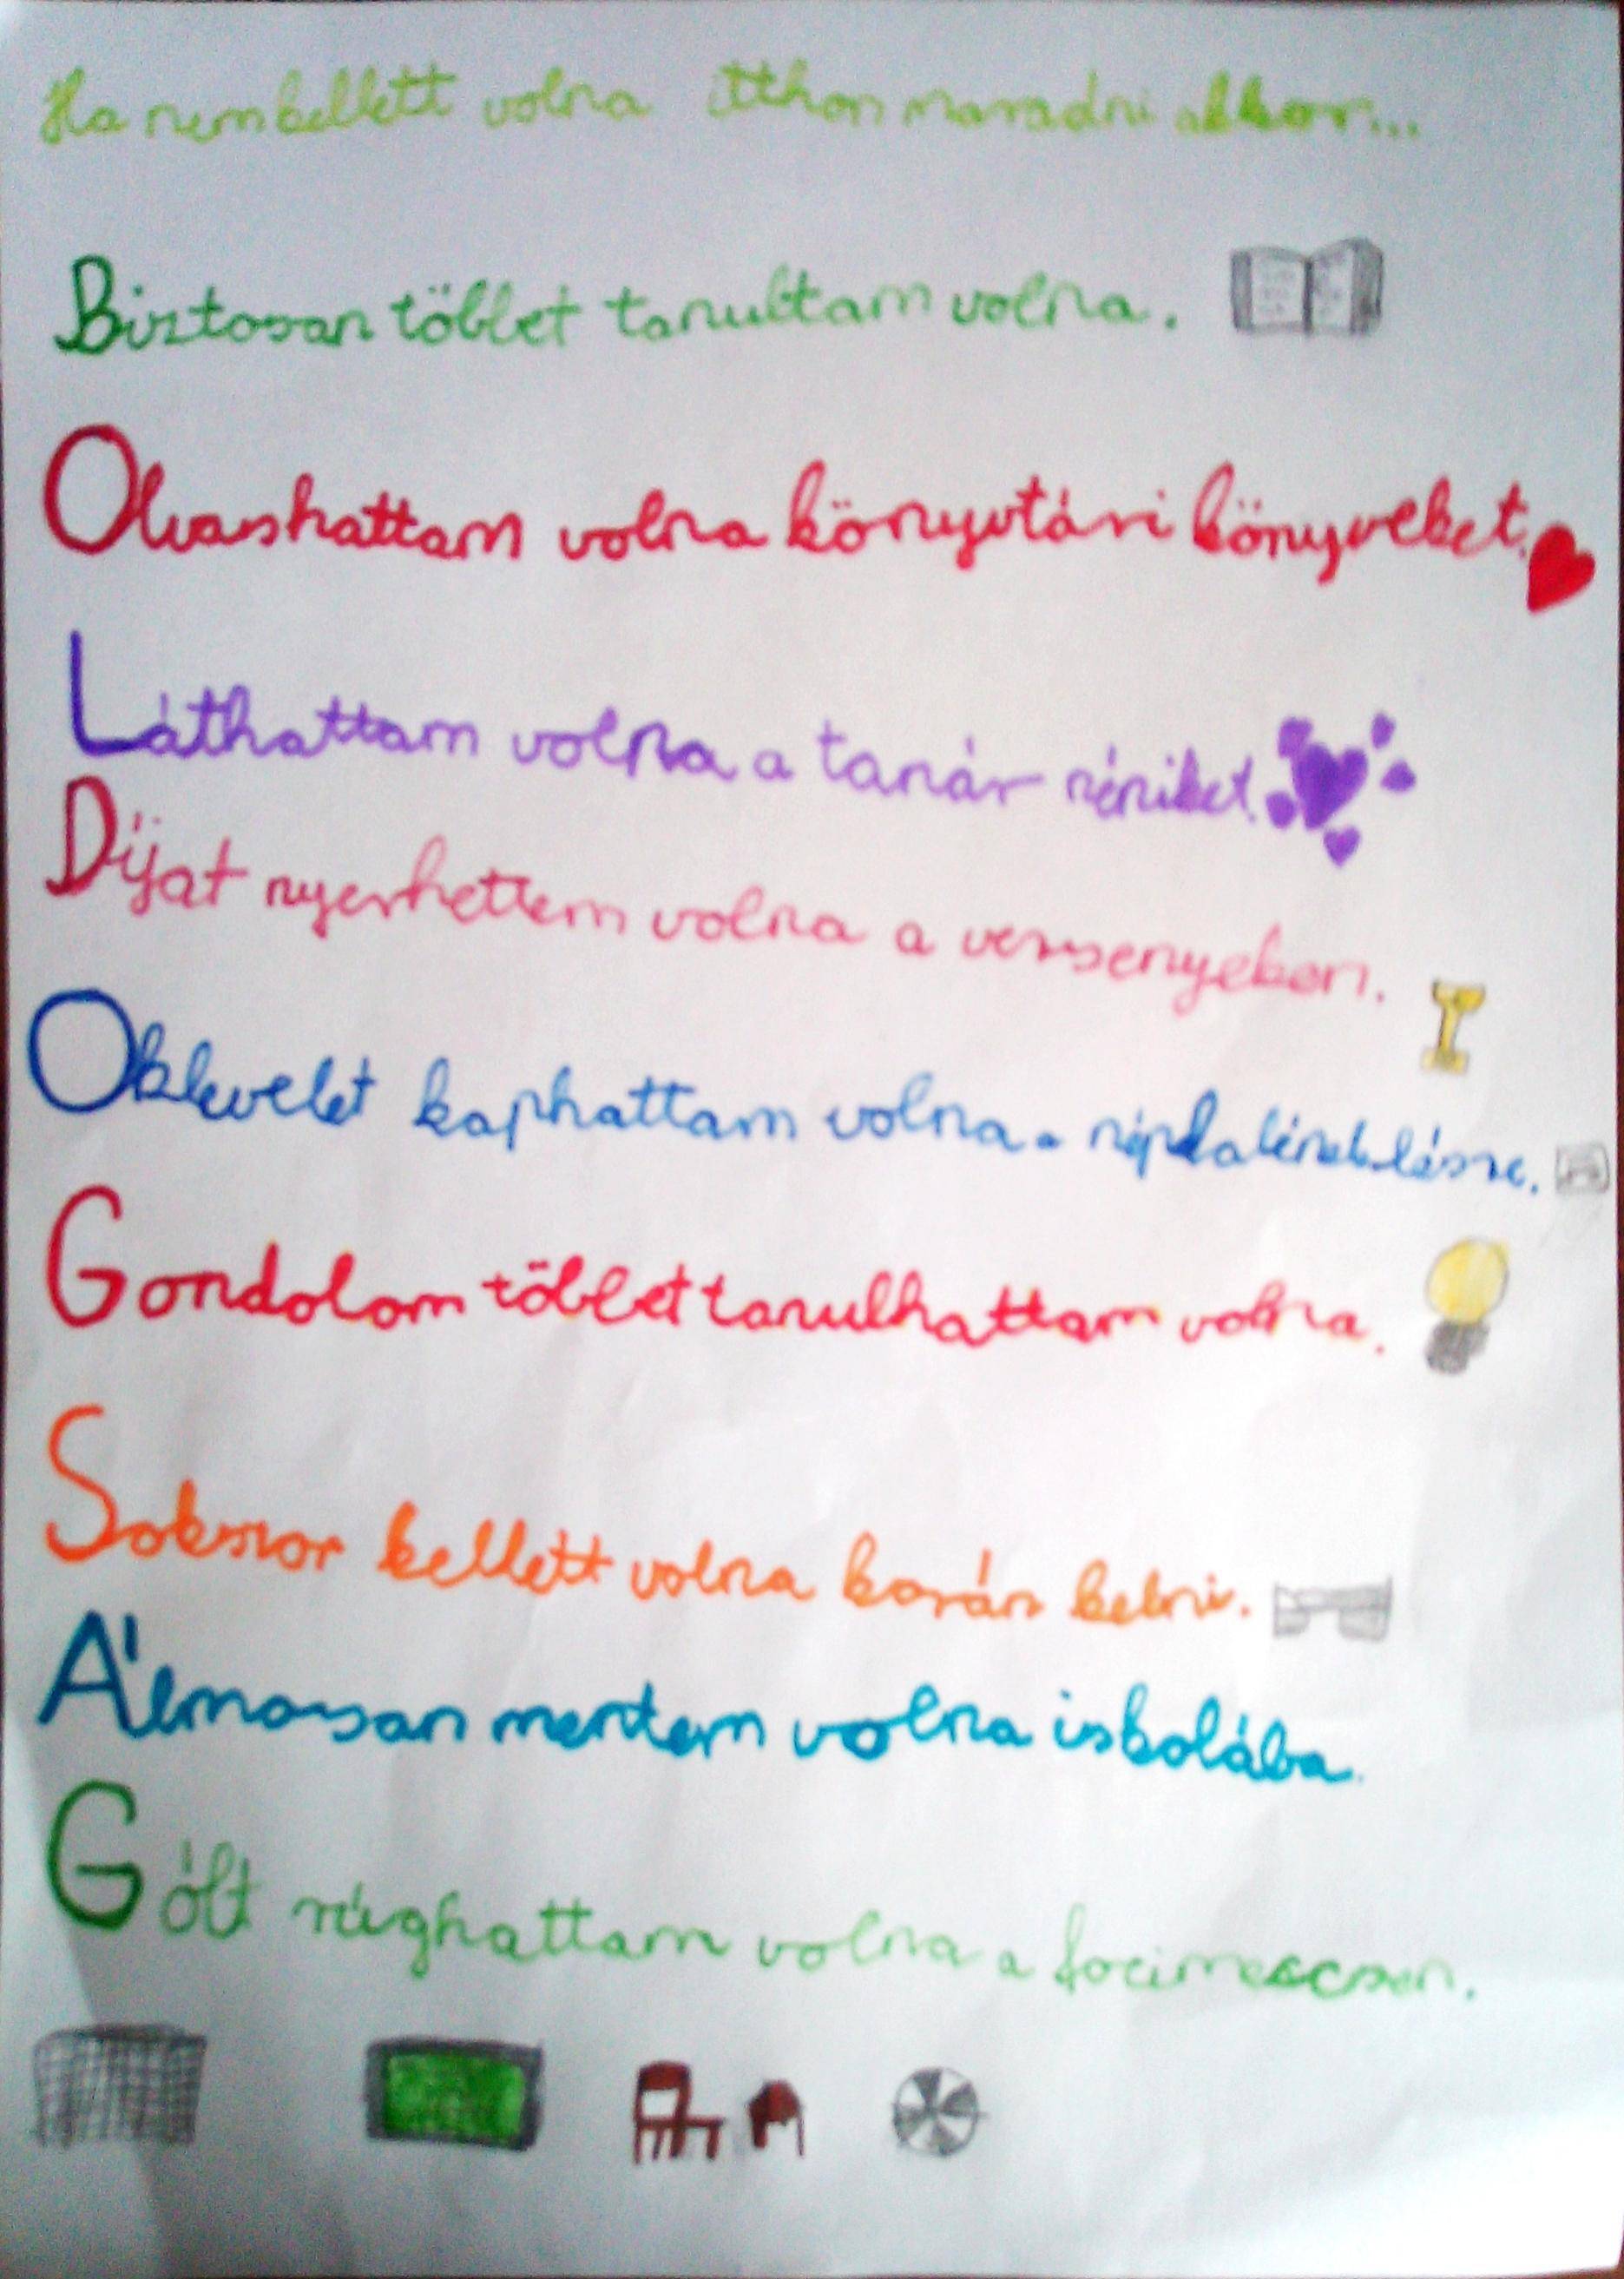 Ha nem kellett volna itthon maradni akkor...
Biztosan többet tanultam volna.
Olvashattam volna könyvtári könyveket.
Láthattam volna a tanár néniket.
Díjat nyerhettem volna a versenyeken.
Oklevelet kaphattam volna a népdaléneklésre.
Gondolom többet tanulhattam volna.
Sokszor kellett volna korán kelni.
Álmosan mentem volna iskolába.
Gólt rúghattam volna a focimeccsen.